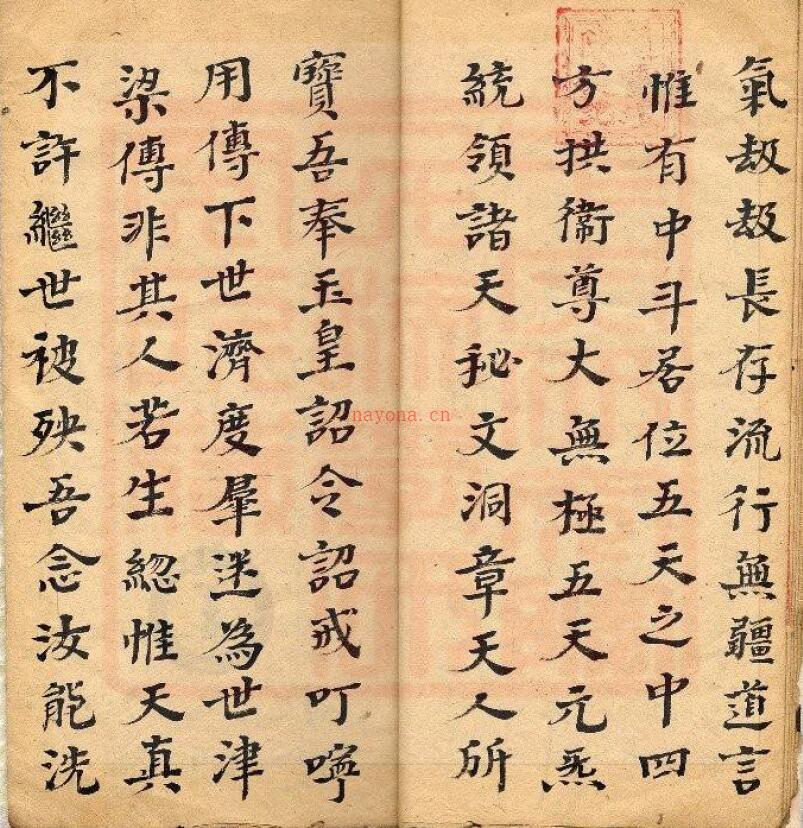 氣劫劫長存流行無疆道言
惟有中斗居位五天之中四
方拱衞尊大無極五天元炁
統領諸天秘文洞章天人所
寶吾奉玉皇詔令詔戒叮嚀
用傳下世濟度羣迷為世津
梁傳非其人若生綛惟天真
不許繼世被殃吾念汝能洗
nayona.cn